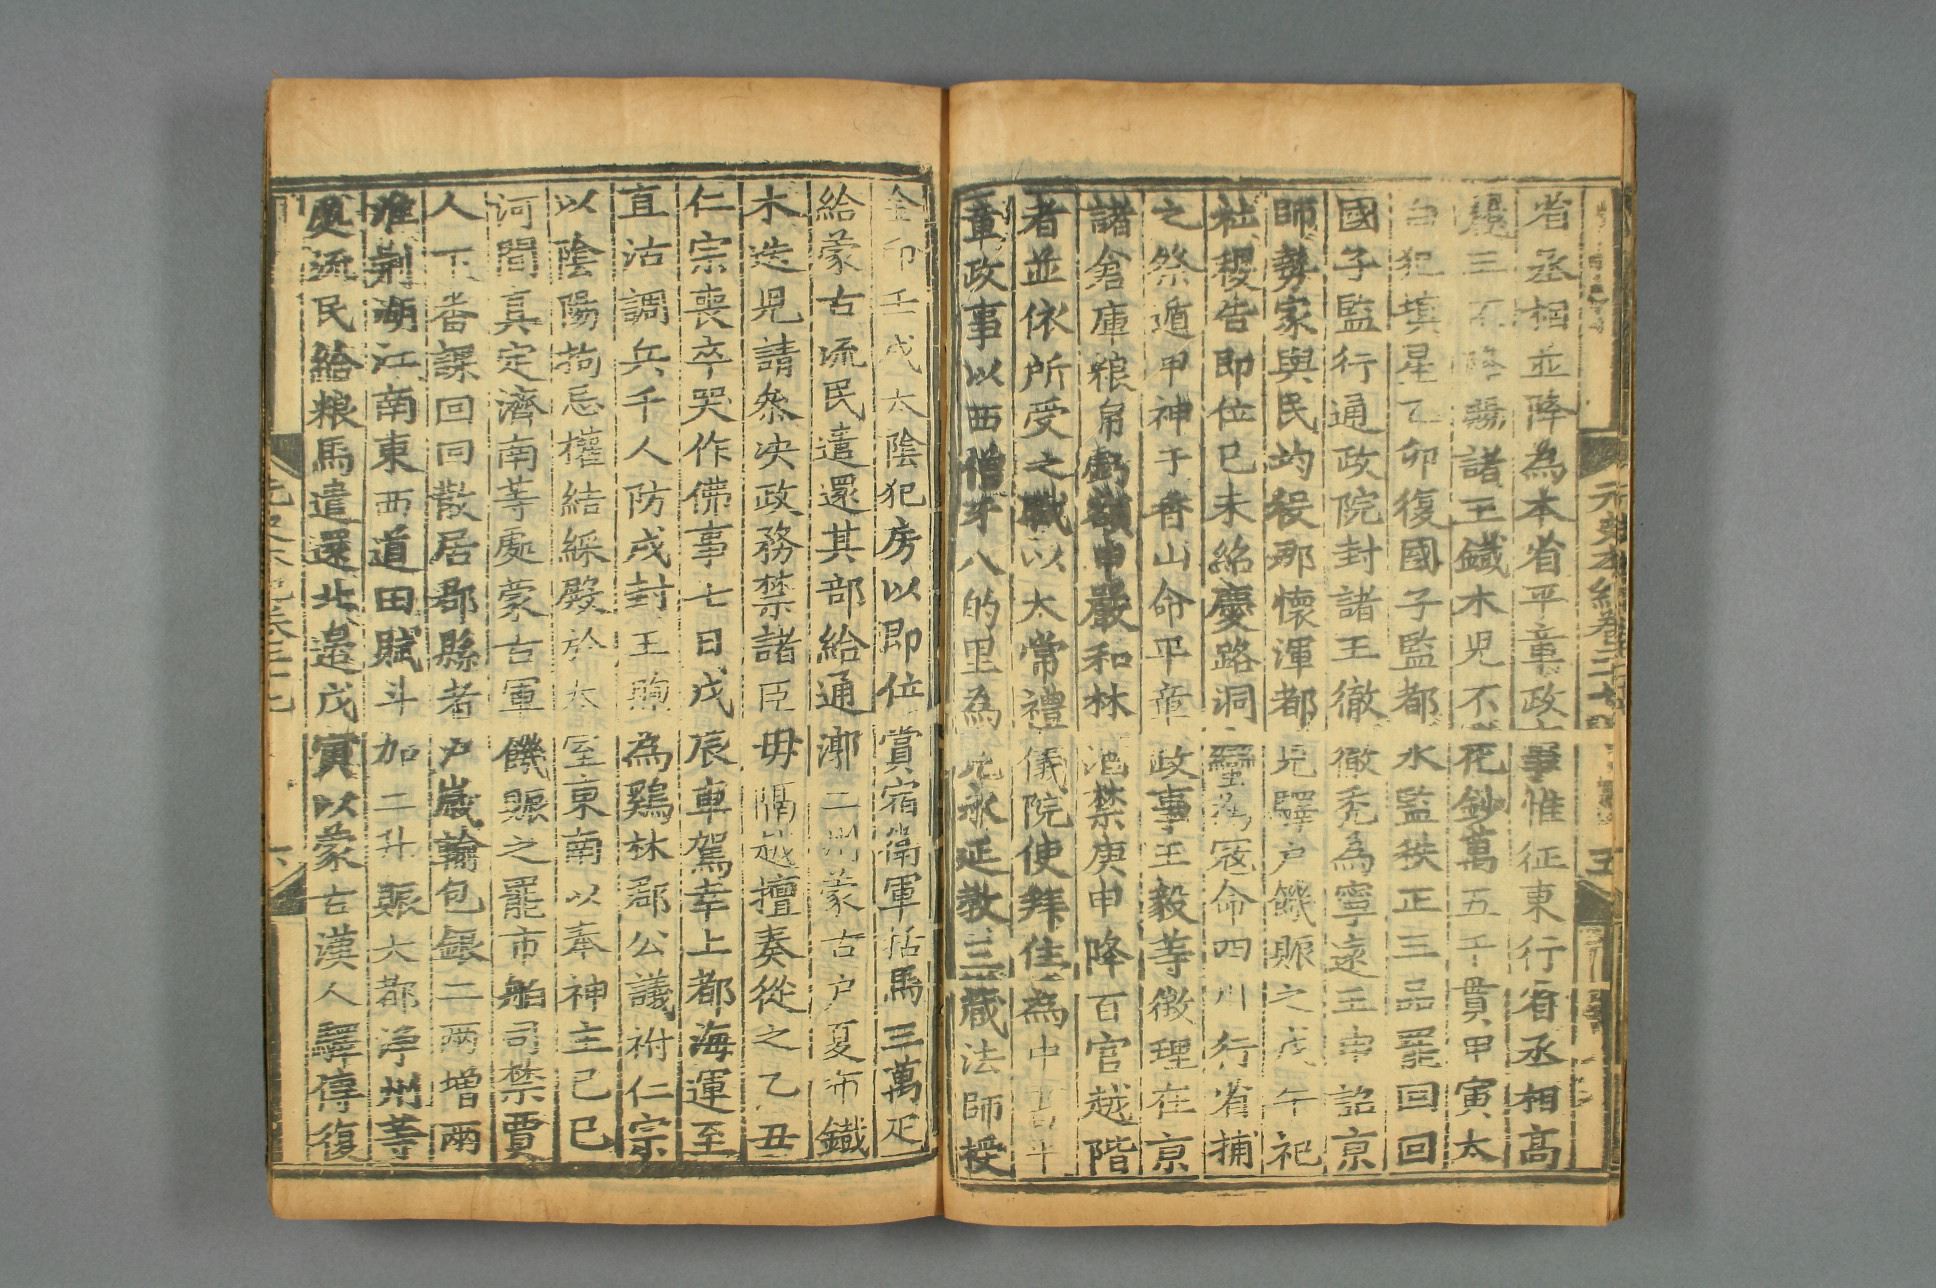 元史本紀卷二十七
五
省丞相並降為本省平章政事惟征東行省丞相高
麗三不降賜諸王鐵木児不花鈔萬五千貫甲寅太
白犯填星乙卯復國子監都水監秩正三品罷回回
國子監行通政院封諸王徹徹禿為寧遠王申詔京
師勢家與民均役那懷渾都児驛户饑賑之戊午祀
社稷告即位己未紹慶路洞蠻為寇命四川行省捕
之祭遁甲神于香山命平章政事王毅等徵理在京
諸倉庫粮帛虧額申嚴和林酒禁庚申降百官越階
者並依所受之職以太常禮儀院使拜住為中書平
章政事以西僧牙八的里為元永延教三藏法師授
金印壬戌太陰犯房以即位賞宿衛軍括馬三萬疋
給蒙古流民遣還其部給通漷二州蒙古户夏布鐵
木迭児請叅决政務禁諸臣毋隔越擅奏從之乙丑
仁宗喪卒哭作佛事七日戊辰車駕幸上都海運至
直沽調兵千人防戍封王煦為鷄林郡公議祔仁宗
以陰陽拘忌權結綵殿於太室東南以奉神主己巳
河間真定濟南等處蒙古軍饑賑之罷市舶司禁賈
人下番課回回散居郡縣者户歲輸包銀二兩增兩
淮荆湖江南東西道田賦斗加二升賑大都淨州等
處流民給粮馬遣還北邊戊寅以蒙古漢人驛傳復
元史本紀卷二十七
六